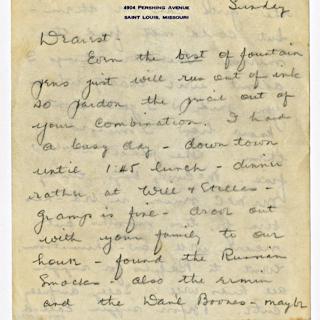 4904 PERSHING AVENUE
SAINT LOUIS, MISSOURI
Sunday
Dearest
Even the best of fountain
pens just will run out of ink
so pardon the pencil out of
your combination. I had
a busy day - down town
until 1:45 lunch - dinner
rather at Will & Stellas -
Gramps is fine - drove out
with your family to our
house - found the Russian
Smocks - also the ermin
and the Danl Boones - maybe